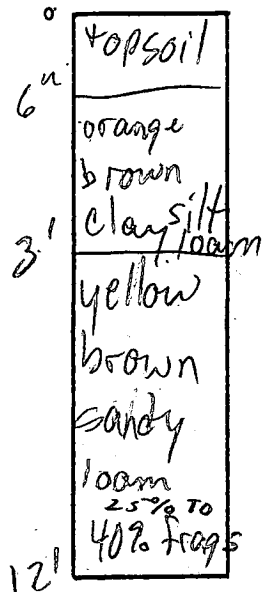 0
topsoil
6"
orange
brown
clay silt
loam
3'
yellow
brown
sandy
loam
25% TO
40% frags
12'